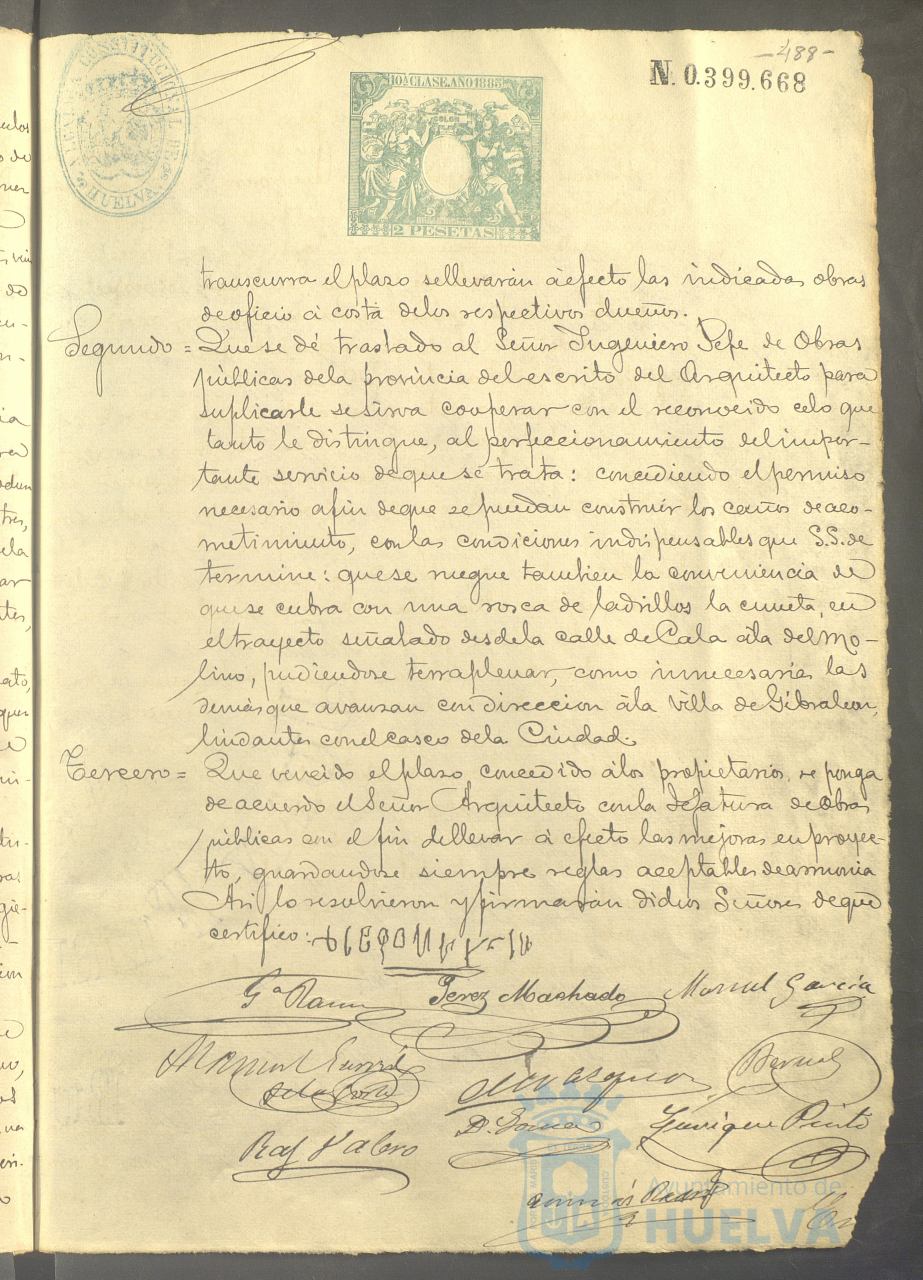 -488-
N. 0.399.668
ALCALDIA CONSTITUCIONAL DE HUELVA
10ª CLASE. AÑO 1885
COLON
2 PESETAS
transcurra el plazo se llevarán á efecto las indicadas obras
de oficio á costa de los respectivos dueños.
Segundo = Que se dé traslado al Señor Ingeniero Jefe de Obras
públicas de la provincia del escrito del Arquitecto para
suplicarle se sirva cooperar con el reconocido celo que
tanto le distingue, al perfeccionamiento del impor-
tante servicio de que se trata: concediendo el permiso
necesario afin de que se puedan construir los caños de aco-
metimiento, con las condiciones indispensables que S.S. de
termine: que se ruegue tambien la conveniencia de
que se cubra con una rosca de ladrillos la cuneta, en
el trayecto señalado desde la calle de Cala á la del Mo-
lino, pudiendose terraplenar, como innecesarias las
demás que avanzan con direccion á la Villa de Gibraleon,
lindantes con el casco de la Ciudad.
Tercero = Que vencido el plazo concedido á los propietarios, se ponga
de acuerdo el Señor Arquitecto con la Jefatura de obras
públicas con el fin de llevar á efecto las mejoras en proyec-
to, guardandose siempre reglas aceptables de armonia
Asi lo resolvieron y firmarán dichos Señores de que
certifico:
Gª Ramos Perez Machado Manuel Garcia
Manuel Garcia Vazquez Bernal
D. Gomez Enrique Pinto
Raf Valero
Ayuntamiento de
HUELVA